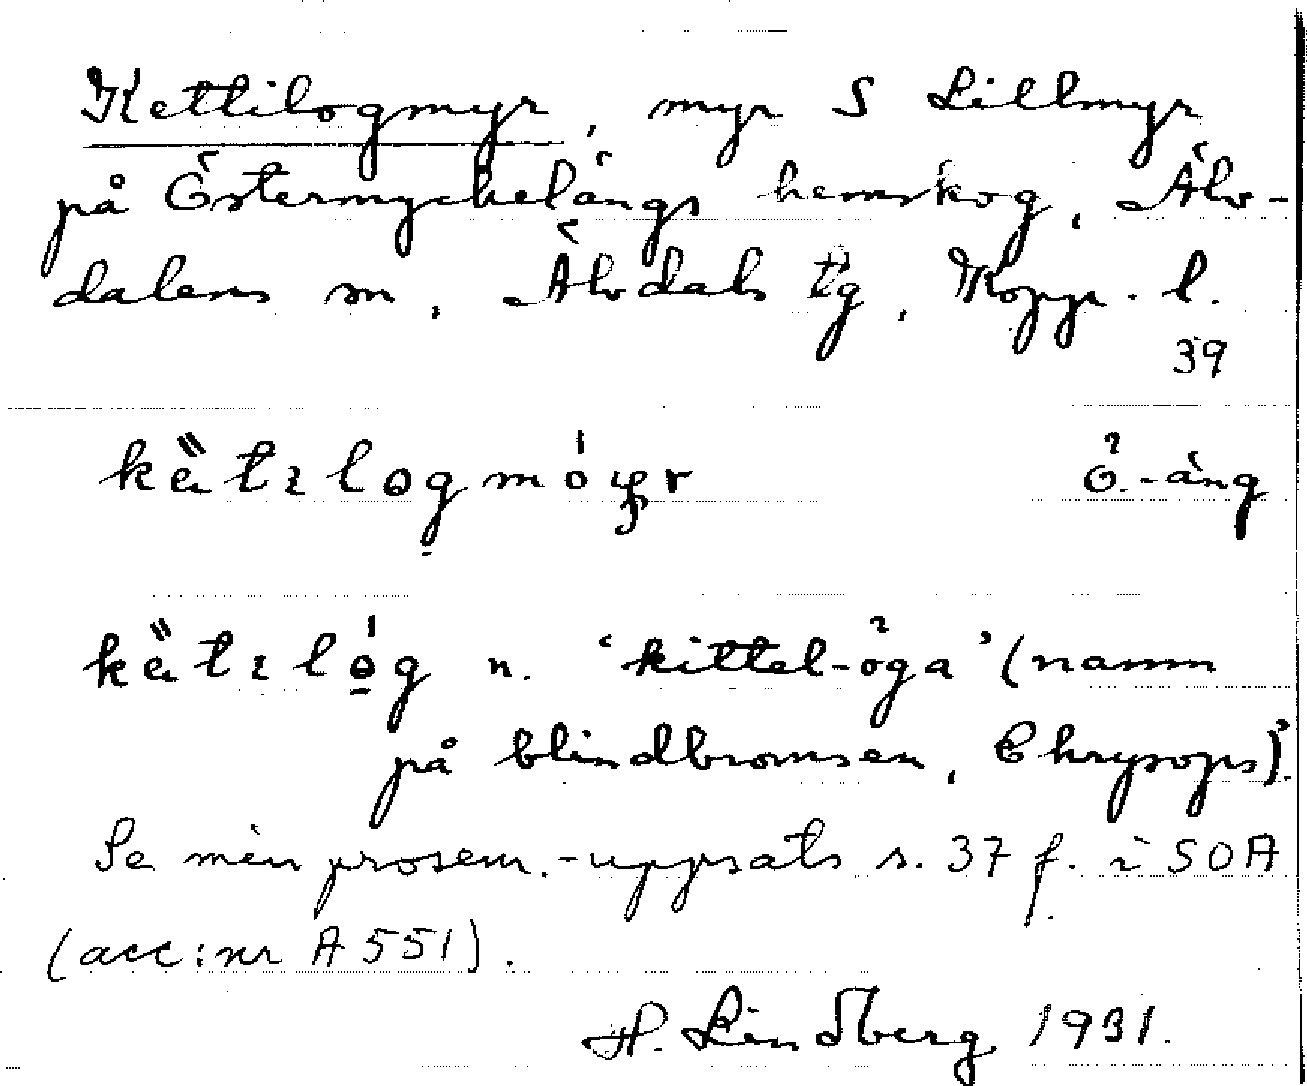 Kettilogmyr, myr S Lillmyr
på Östermyckelängs hemskog, Älv-
dalens sn, Älvdals tg, Kopp. l.
39
Ö.-äng
n. 'kittel-öga' (namn
på blindbromsen, Chrysops).
Se min prosem.-uppsats s. 37 f. i SOA
(acc:nr A 551).
H. Lindberg 1931.